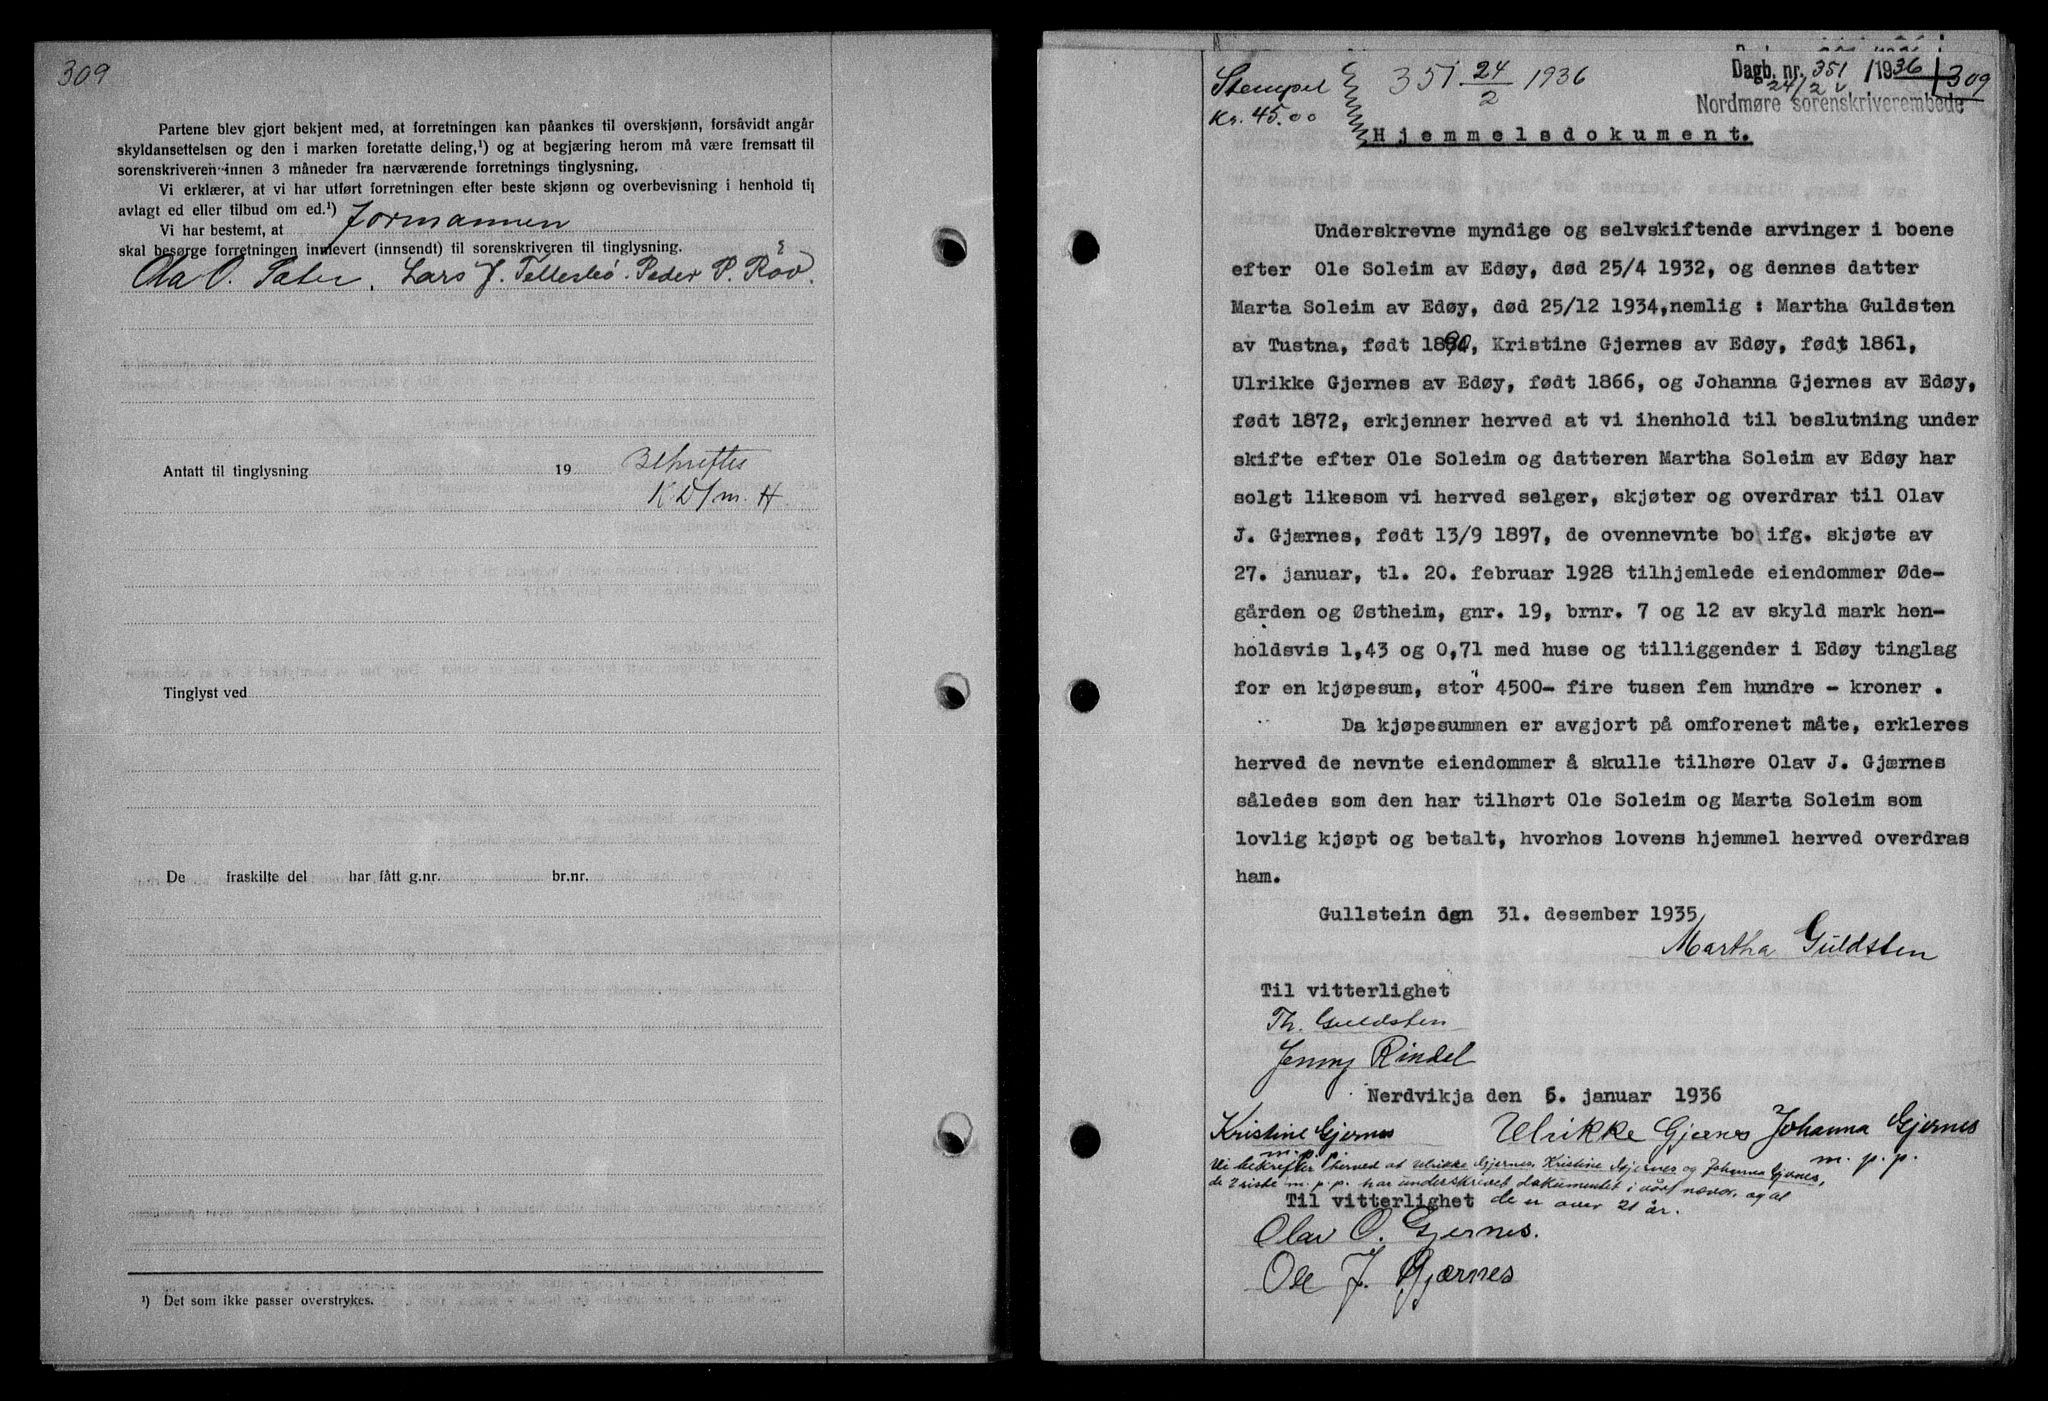 309
Partene blev gjort bekjent med, at forretningen kan påankes til overskjønn, forsåvidt angår
skyldansettelsen og den i marken foretatte deling,¹) og at begjæring herom må være fremsatt til
sorenskriveren innen 3 måneder fra nærværende forretnings tinglysning.
Vi erklærer, at vi har utført forretningen efter beste skjønn og overbevisning i henhold til
avlagt ed eller tilbud om ed.¹)
Vi har bestemt, at Formannen
skal besørge forretningen innlevert (innsendt) til sorenskriveren til tinglysning.
Ola O. Sater. Lars J. Tellesbø. Peder P. Røv.
Antatt til tinglysning 19
K.D/m. H.
Tinglyst ved
De fraskilte del har fått g.nr. br.nr.
¹) Det som ikke passer overstrykes.
Stempel
Kr. 45.00
351 24/2 1936
Dagb. nr. 351 /1936
24/2
309
Nordmøre sorenskriverembede
Hjemmelsdokument.
Underskrevne myndige og selvskiftende arvinger i boene
efter Ole Soleim av Edøy, død 25/4 1932, og dennes datter
Marta Soleim av Edøy, død 25/12 1934, nemlig : Martha Guldsten
av Tustna, født 1890, Kristine Gjernes av Edøy, født 1861,
Ulrikke Gjernes av Edøy, født 1866, og Johanna Gjernes av Edøy,
født 1872, erkjenner herved at vi ihenhold til beslutning under
skifte efter Ole Soleim og datteren Martha Soleim av Edøy har
solgt likesom vi herved selger, skjøter og overdrar til Olav
J. Gjærnes, født 13/9 1897, de ovennevnte bo ifg. skjøte av
27. januar, tl. 20. februar 1928 tilhjemlede eiendommer Øde-
gården og Østheim, gnr. 19, brnr. 7 og 12 av skyld mark hen-
holdsvis 1,43 og 0,71 med huse og tilliggender i Edøy tinglag
for en kjøpesum, stor 4500- fire tusen fem hundre - kroner .
Da kjøpesummen er avgjort på omforenet måte, erkleres
herved de nevnte eiendommer å skulle tilhøre Olav J. Gjærnes
således som den har tilhørt Ole Soleim og Marta Soleim som
lovlig kjøpt og betalt, hvorhos lovens hjemmel herved overdras
ham.
Gullstein den 31. desember 1935
Martha Guldsten
Til vitterlighet
Th. Guldsten
Jenny Rindel
Nerdvikja den 6. januar 1936
Kristine Gjernes Ulrikke Gjernes Johanna Gjernes
m.p.p. m. p. p.
Vi bekrefter herved at Ulrikke Gjernes, Kristine Gjernes og Johanna Gjernes,
de 2 siste m. p. p. har underskrevet dokumentet i vårt nærvær, og at
Til vitterlighet de er over 21 år.
Olav O. Gjernes.
Ole J. Gjærnes